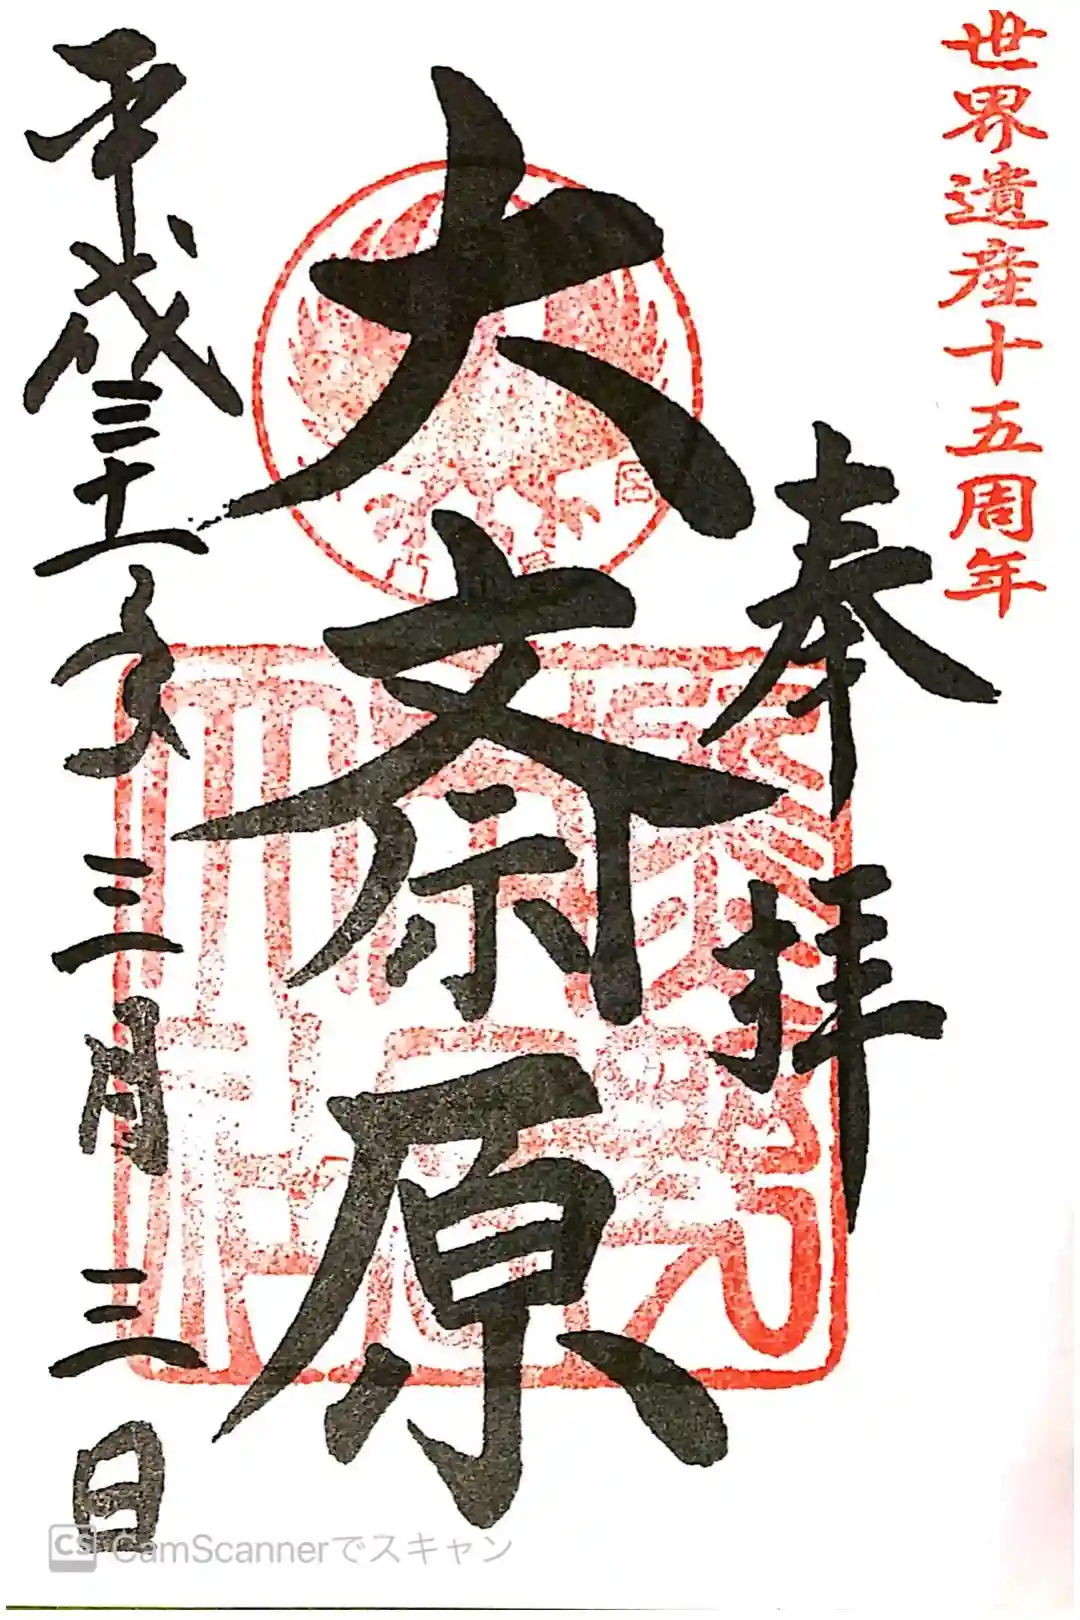 世界遺産十五周年
奉拝
大斎原
平成三十一年三月三日
CS CamScannerでスキャン